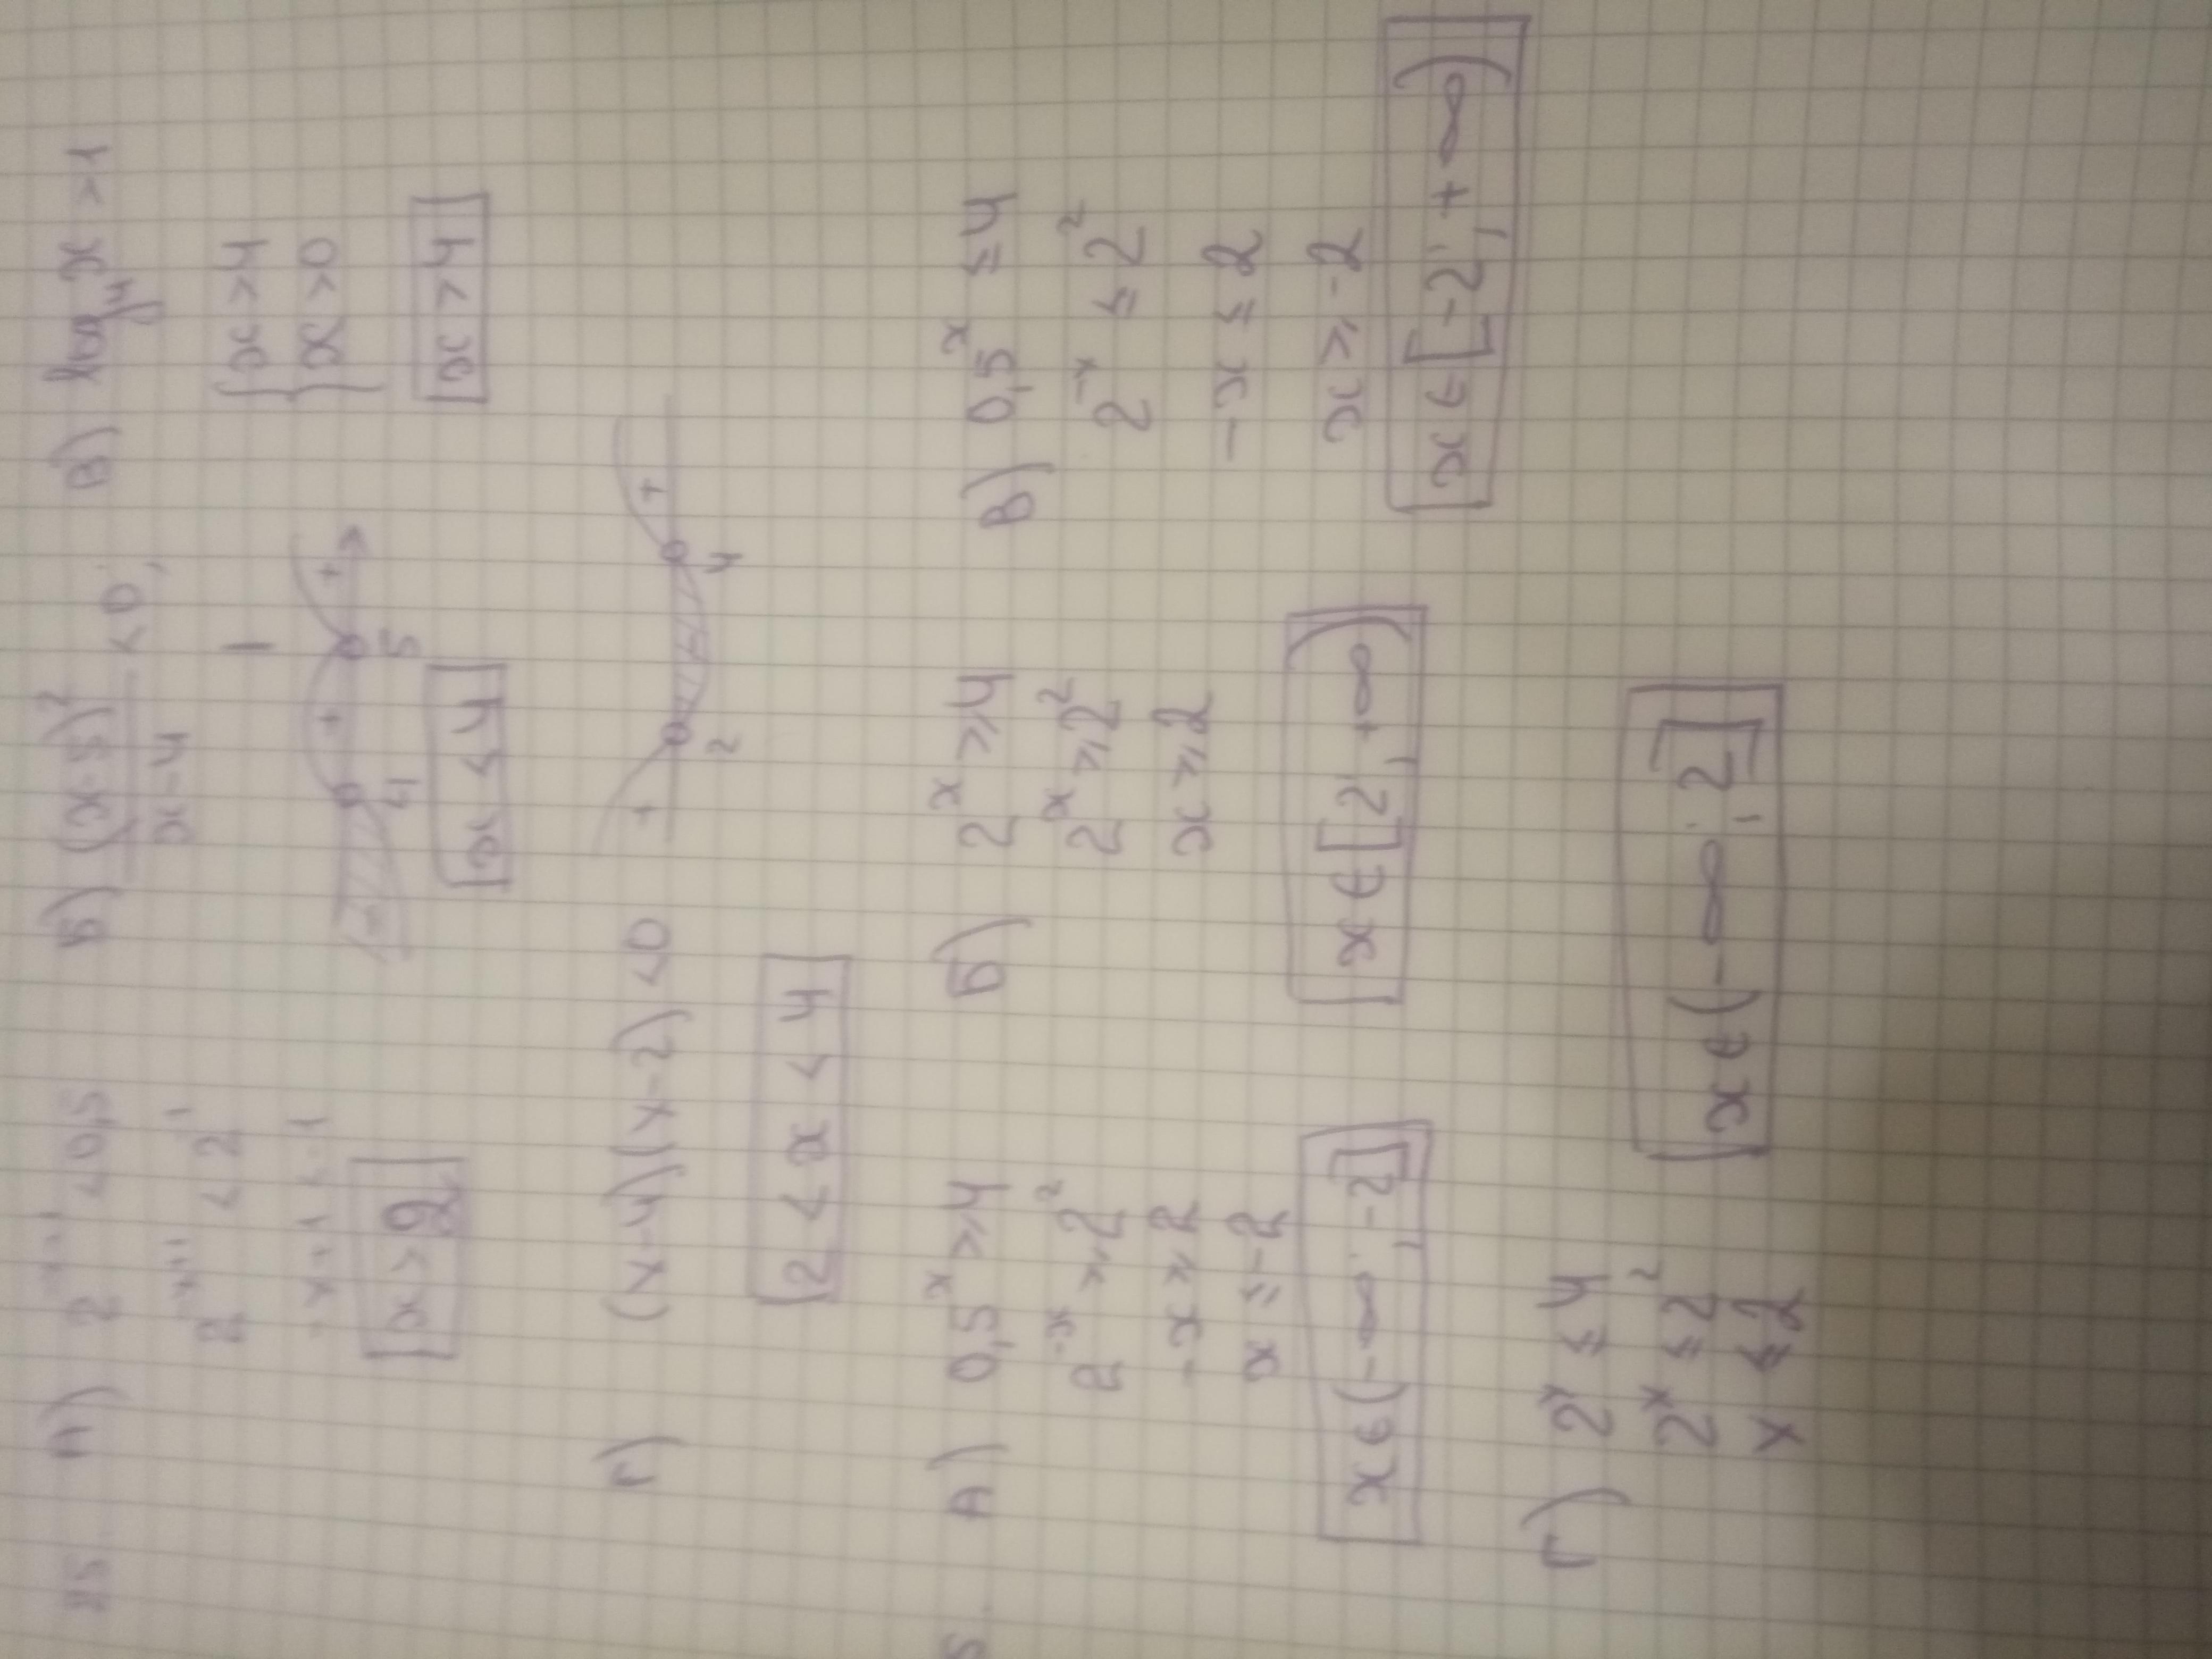 А) 2^{-x+1} < 0,5
2^{-x+1} < 2^{-1}
-x+1 < -1
x > 2
Б) (x-5)^2 / (x-4) < 0;
- + +
4 5
x < 4
В) log_4 x > 1
{ x > 4
{ x > 0
x > 4
Г) (x-4)(x-2) < 0
+ - +
2 4
2 < x < 4
А) 0,5^x ⩾ 4
2^{-x} ⩾ 2^2
-x ⩾ 2
x ≤ -2
x ∈ (-∞; -2]
Б) 2^x ⩾ 4
2^x ⩾ 2^2
x ⩾ 2
x ∈ [2; +∞)
В) 0,5^x ≤ 4
2^{-x} ≤ 2^2
-x ≤ 2
x ⩾ -2
x ∈ [-2; +∞)
Г) 2^x ≤ 4
2^x ≤ 2^2
x ≤ 2
x ∈ (-∞; 2]